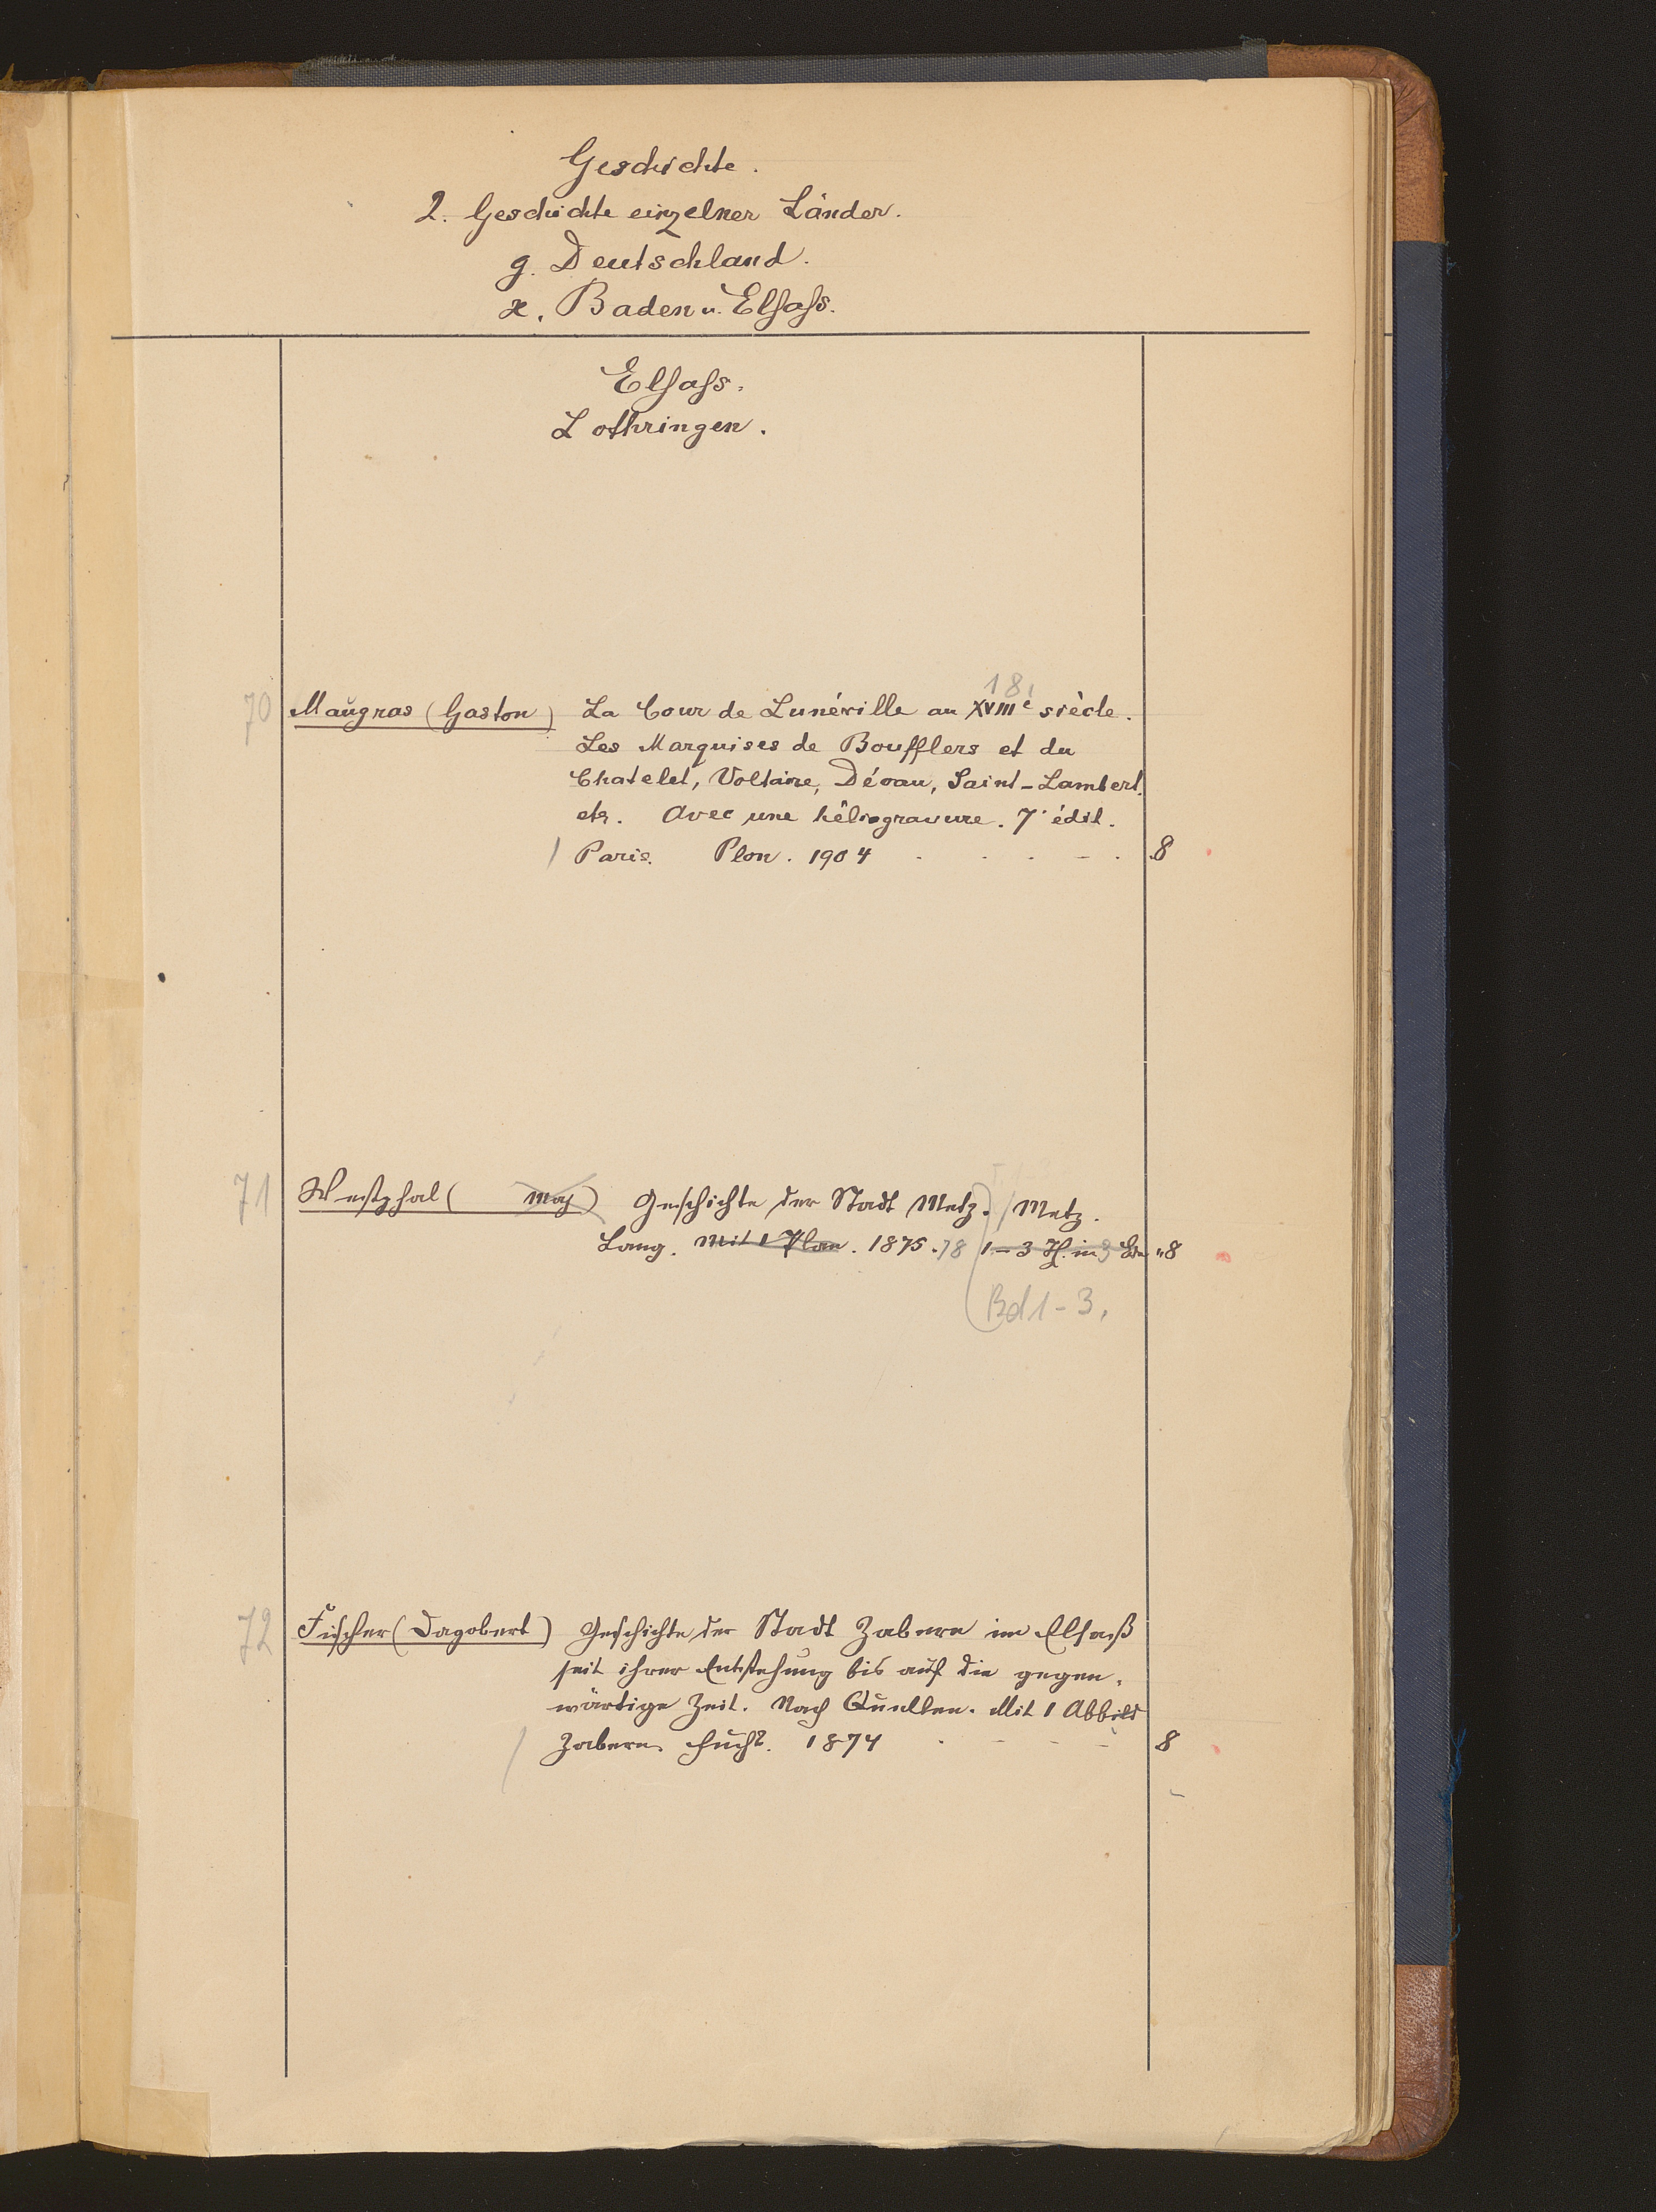 Geschichte.
2. Geschichte einzelner Länder.
g. Deutschland.
x. Baden u. Elsass.
Elsass.
Lothringen.
18.
70 Maugras (Gaston) La Cour de Lunéville au XVIIIe siècle.
Les Marquises de Boufflers et du
Chatelet, Voltaire, Dévau, Saint-Lambert.
etc. Avec une héliogravure. 7e édit.
Paris. Plon. 1904 8
71 Westphal ( ) Geschichte der Stadt Metz. / Metz.
Lang. Mit 1 Plan. 1875.78 1-3 Th. in 3 Bdn "8
Bd 1-3.
72 Fischer (Dagobert) Geschichte der Stadt Zabern im Elsaß
seit ihrer Entstehung bis auf die gegen-
wärtige Zeit. Nach Quellen. Mit 1 Abbild
Zabern. Fuchs. 1874 8